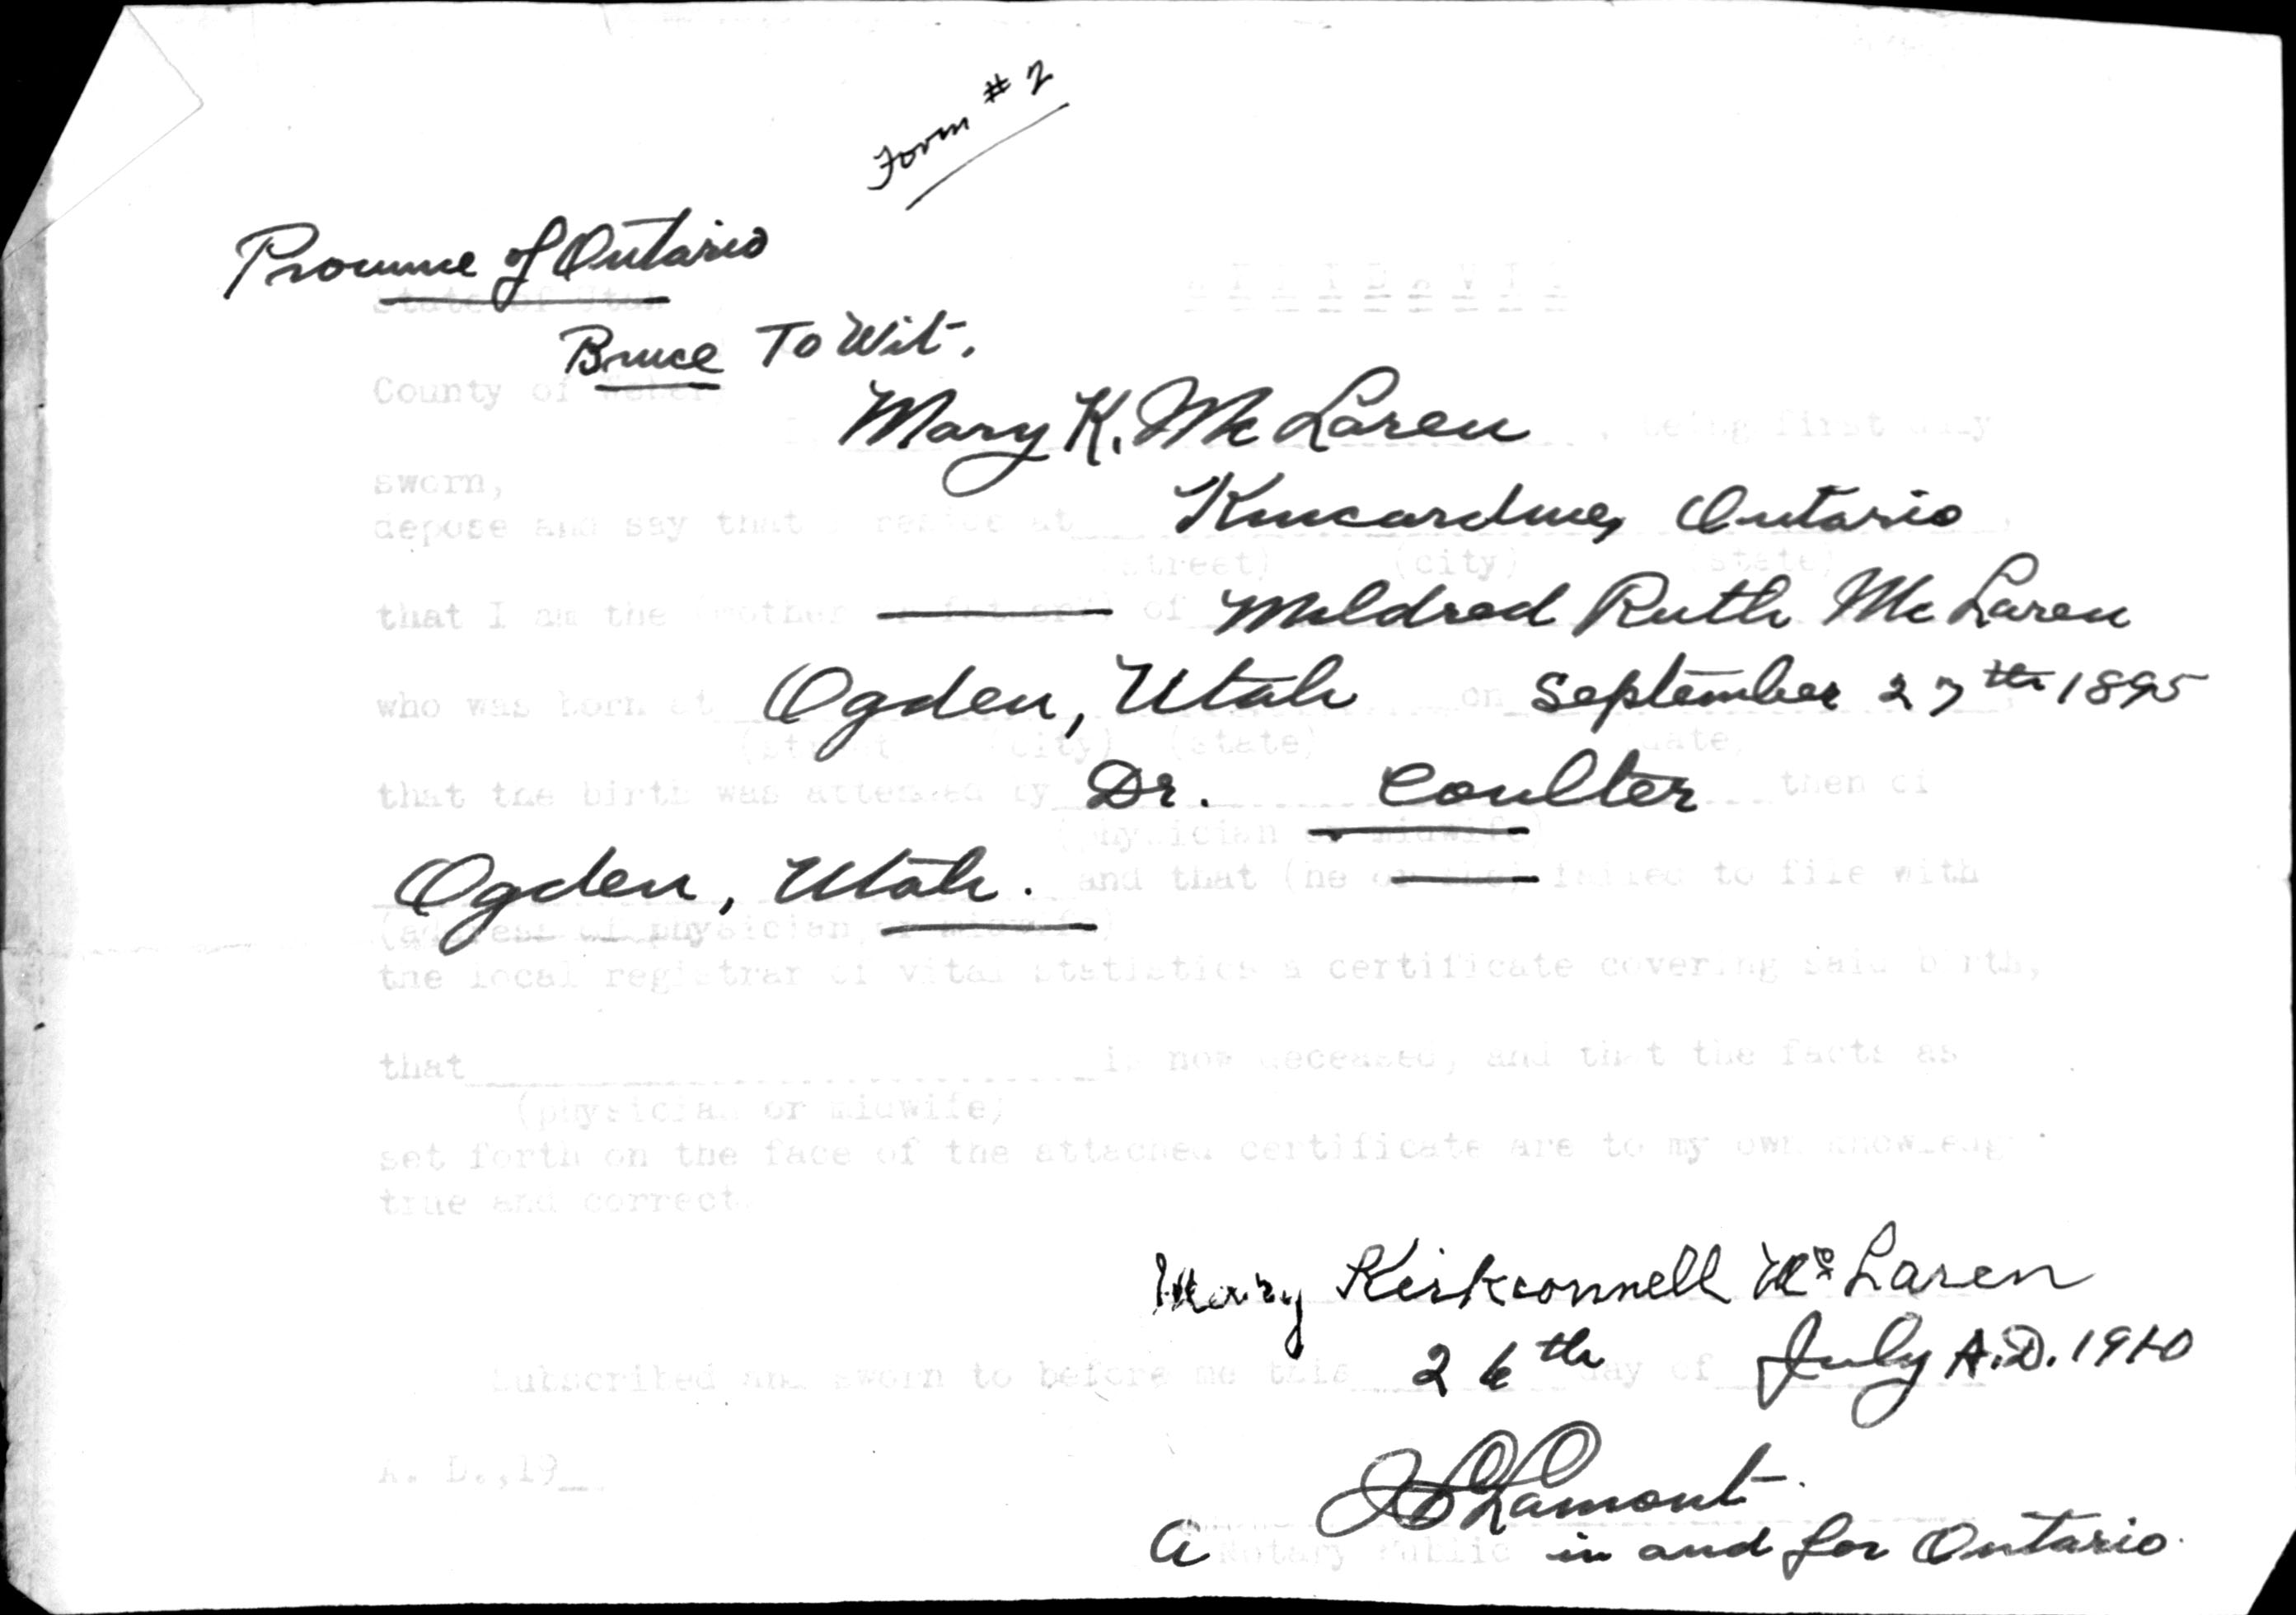 Form # 2
Province of Ontario
State of Utah
A F F I D A V I T
Bruce To Wit.
County of Weber
Mary K. McLaren, being first duly
sworn,
depose and say that I reside at Kincardine, Ontario,
(street) (city) (state)
that I am the (mother or father) of Mildred Ruth McLaren
who was born at Ogden, Utah on September 27th 1895,
(street) (city) (state) (date)
that the birth was attended by Dr. Coulter then of
(physician or midwife)
Ogden, Utah. and that (he or she) failed to file with
(address of physician or midwife)
the local registrar of vital statistics a certificate covering said birth,
that is now deceased, and that the facts as
(physician or midwife)
set forth on the face of the attached certificate are to my own knowledge
true and correct.
Mary Kirkconnell McLaren
Subscribed and sworn to before me this 26th day of July A.D. 1910
A. D.,19
Lamont
A Notary Public in and for Ontario.